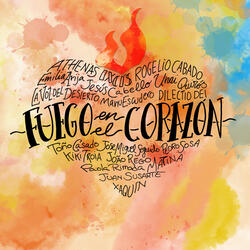 ATHENAS DAVID S. ROGELIO CABADO
Emilia Arija Jesús Cabello Unai Quirós
LA VOZ DEL DESIERTO MANU ESCUDERO DILECTIO DEI
FUEGO en el CORAZÓN
Toño Casado José Miguel Seguido PEDRO SOSA
KIKI TROIA JOÃO REGO MATINA
Paola Pimada
JUAN SUSARTE
XAQUÍN